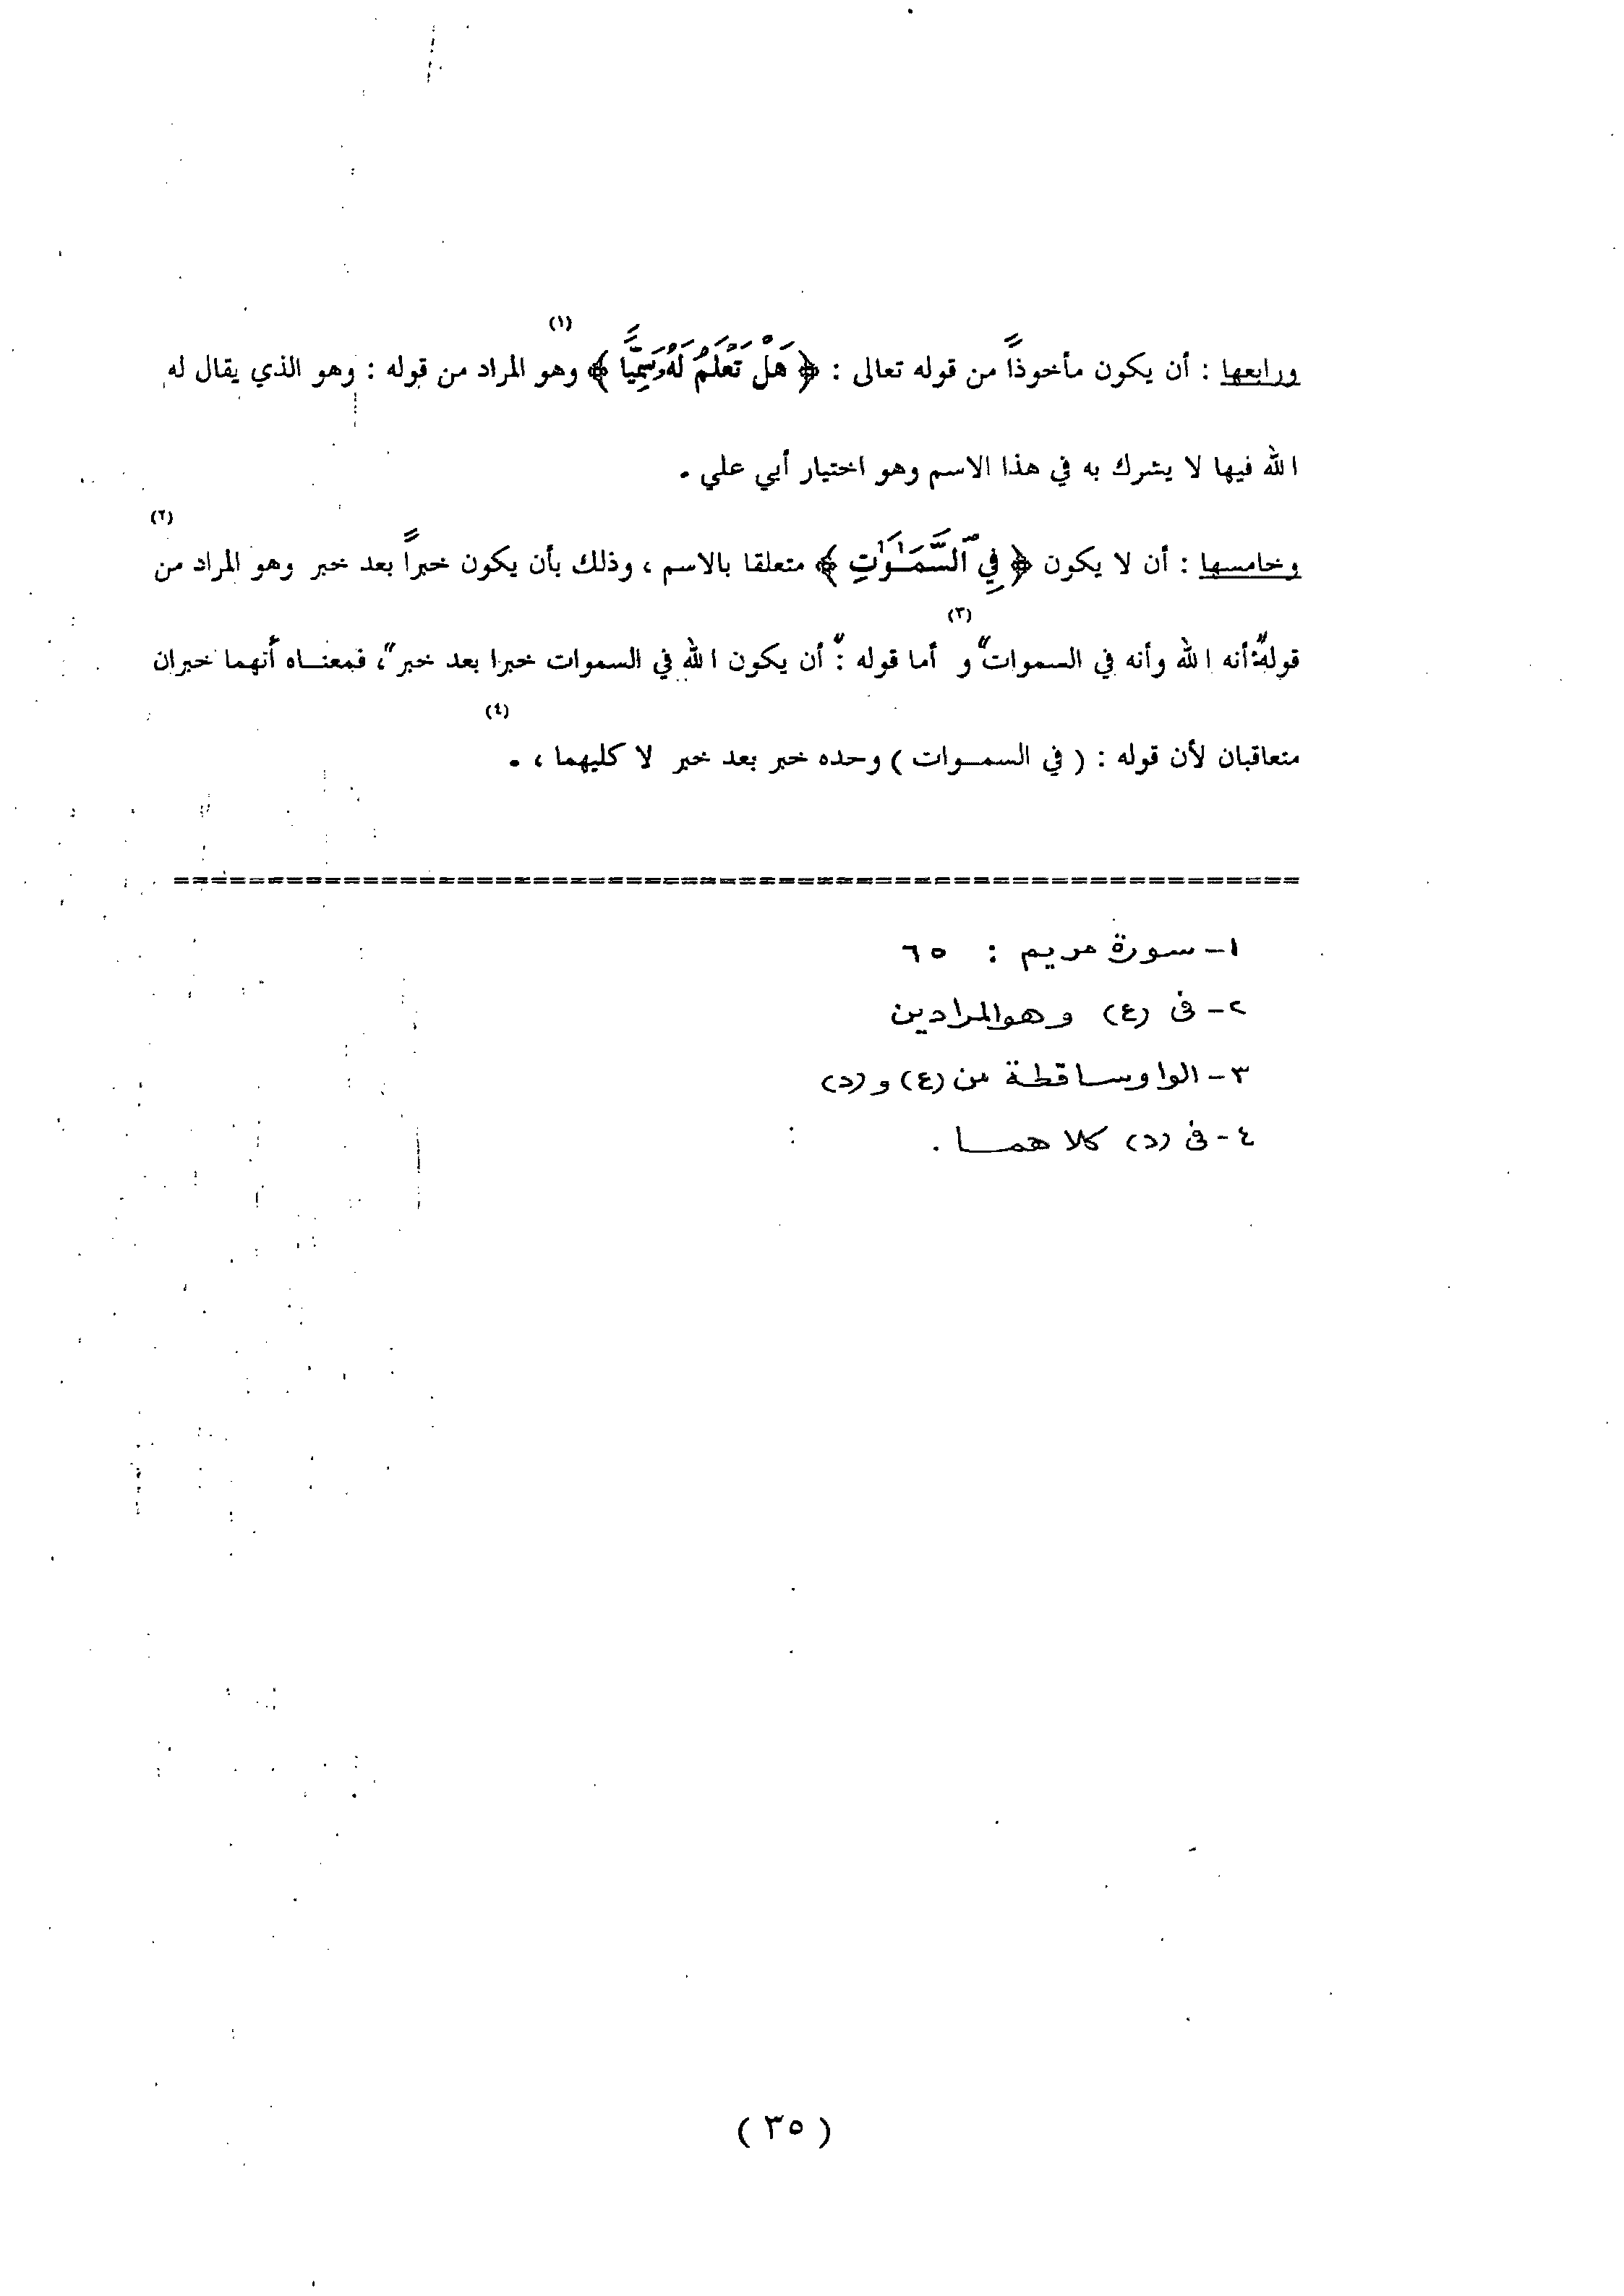 ورابعها : أن يكون مأخوذاً من قوله تعالى : ﴿ هَلْ تَعْلَمُ لَهُ سَمِيًّا ﴾ (١) وهو المراد من قوله : وهو الذي يقال له
الله فيها لا يشرك به في هذا الاسم وهو اختيار أبي علي .
وخامسها : أن لا يكون ﴿ فِي السَّمَـٰوَٰتِ ﴾ متعلقا بالاسم ، وذلك بأن يكون خبراً بعد خبر وهو المراد من (٢)
قوله : "أنه الله وأنه في السموات" (٣) و أما قوله : "أن يكون الله في السموات خبرا بعد خبر"، فمعنـاه أنهما خبران
متعاقبان لأن قوله : ( في السمـوات ) وحده خبر بعد خبر لا كليهما (٤) ، .
١- سورة مريم : ٦٥
٢- فى (ع) وهو المرادين
٣- الواو ساقطة من (ع) و (د)
٤- فى (د) كلاهمـا .
( ٣٥ )